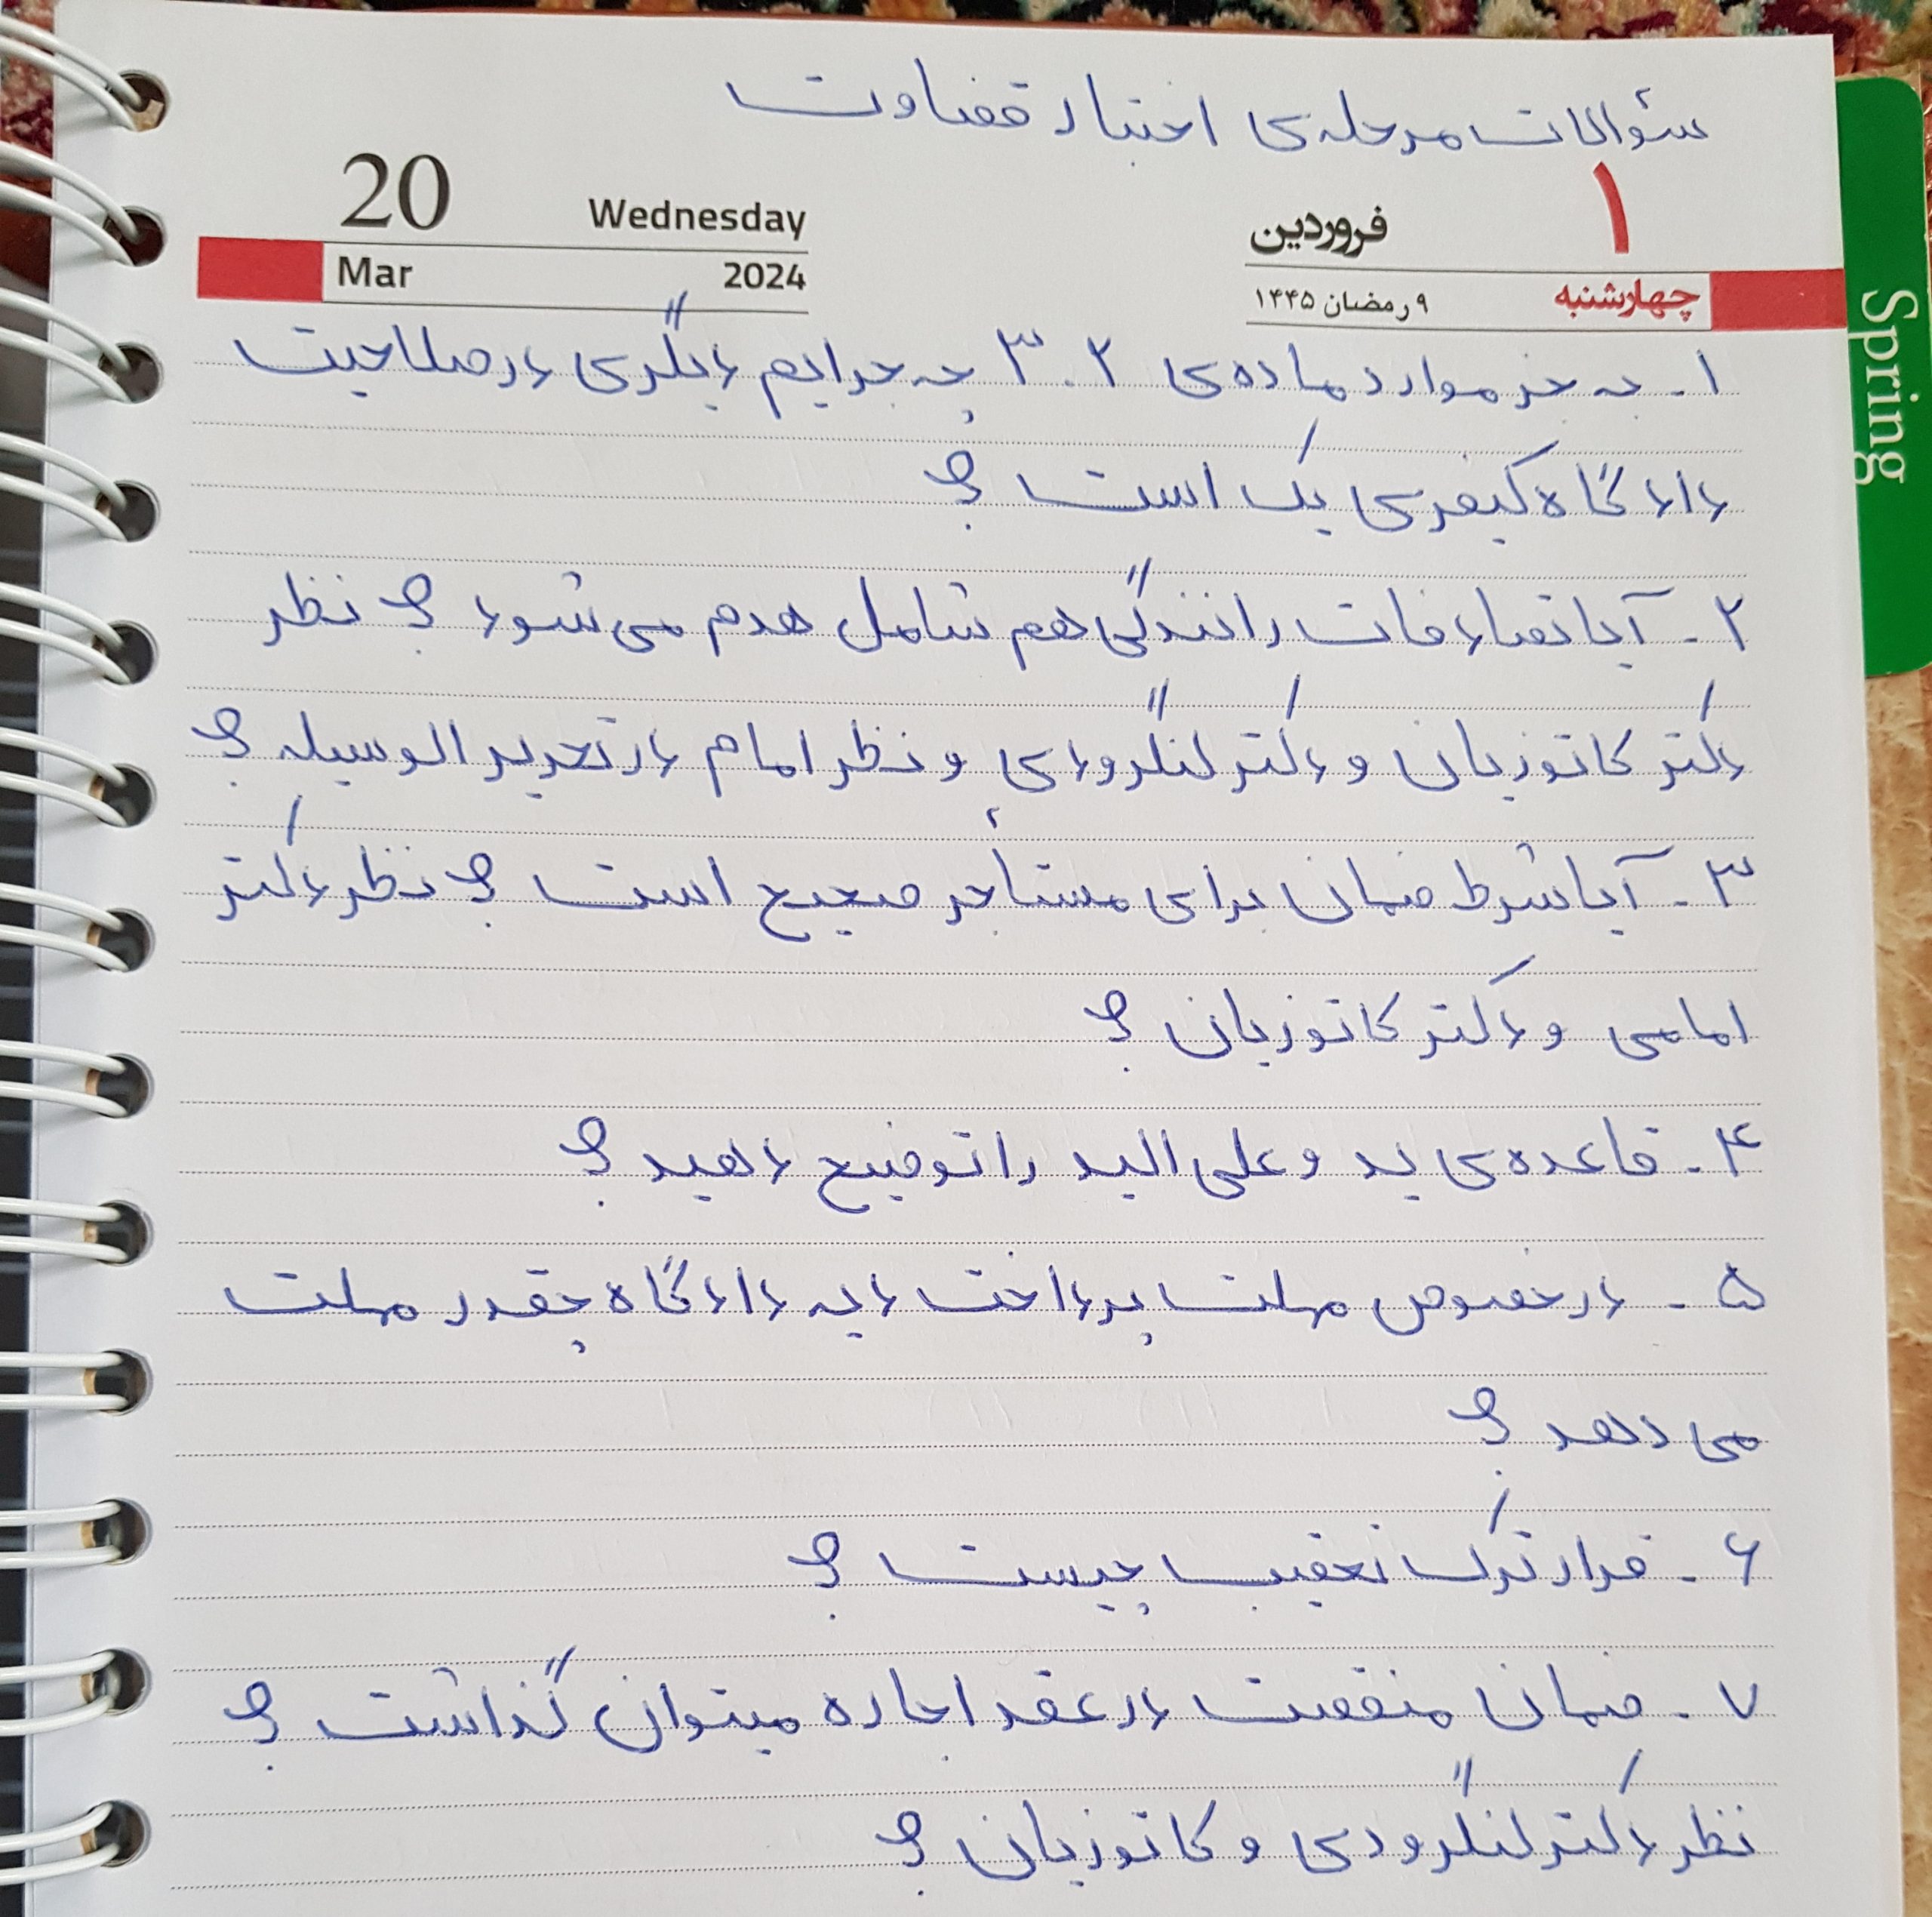 سئوالات مرحله‌ی اختبار قضاوت
20 Wednesday
Mar 2024
۱ فروردین
چهارشنبه ۹ رمضان ۱۴۴۵
Spring
۱- به جز موارد ماده‌ی ۳۰۲ چه جرایم دیگری در صلاحیت
دادگاه کیفری یک است ؟
۲- آیا تصادفات رانندگی هم شامل هدم می شود ؟ نظر
دکتر کاتوزیان و دکتر لنگرودی و نظر امام در تحریر الوسیله ؟
۳- آیا شرط ضمان برای مستأجر صحیح است ؟ نظر دکتر
امامی و دکتر کاتوزیان ؟
۴- قاعده‌ی ید و علی الید را توضیح دهید ؟
۵- در خصوص مهلت پرداخت دیه دادگاه چقدر مهلت
می دهد ؟
۶- قرار ترک تعقیب چیست ؟
۷- ضمان منقصت در عقد اجاره میتوان گذاشت ؟
نظر دکتر لنگرودی و کاتوزیان ؟